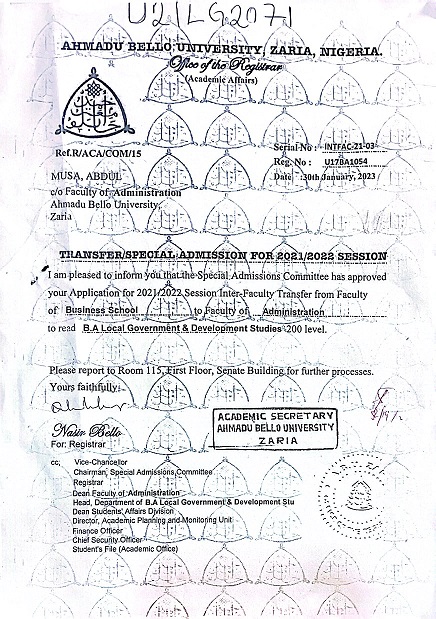 U21LG2071
AHMADU BELLO UNIVERSITY, ZARIA, NIGERIA.
Office of the Registrar
(Academic Affairs)
Ref.R/ACA/COM/15
Serial No : INTFAC-21-03
Reg. No : U17BA1054
Date :30th January, 2023
MUSA, ABDUL
c/o Faculty of Administration
Ahmadu Bello University,
Zaria
TRANSFER/SPECIAL ADMISSION FOR 2021/2022 SESSION
I am pleased to inform you that the Special Admissions Committee has approved
your Application for 2021/2022 Session Inter-Faculty Transfer from Faculty
of Business School to Faculty of Administration
to read B.A Local Government & Development Studies 200 level.
Please report to Room 115, First Floor, Senate Building for further processes.
Yours faithfully:
Nasir Bello
For: Registrar
ACADEMIC SECRETARY
AHMADU BELLO UNIVERSITY
ZARIA
cc; Vice-Chancellor
Chairman, Special Admissions Committee
Registrar
Dean Faculty of Administration
Head, Department of B.A Local Government & Development Stu
Dean Students' Affairs Division
Director, Academic Planning and Monitoring Unit
Finance Officer
Chief Security Officer
Student's File (Academic Office)